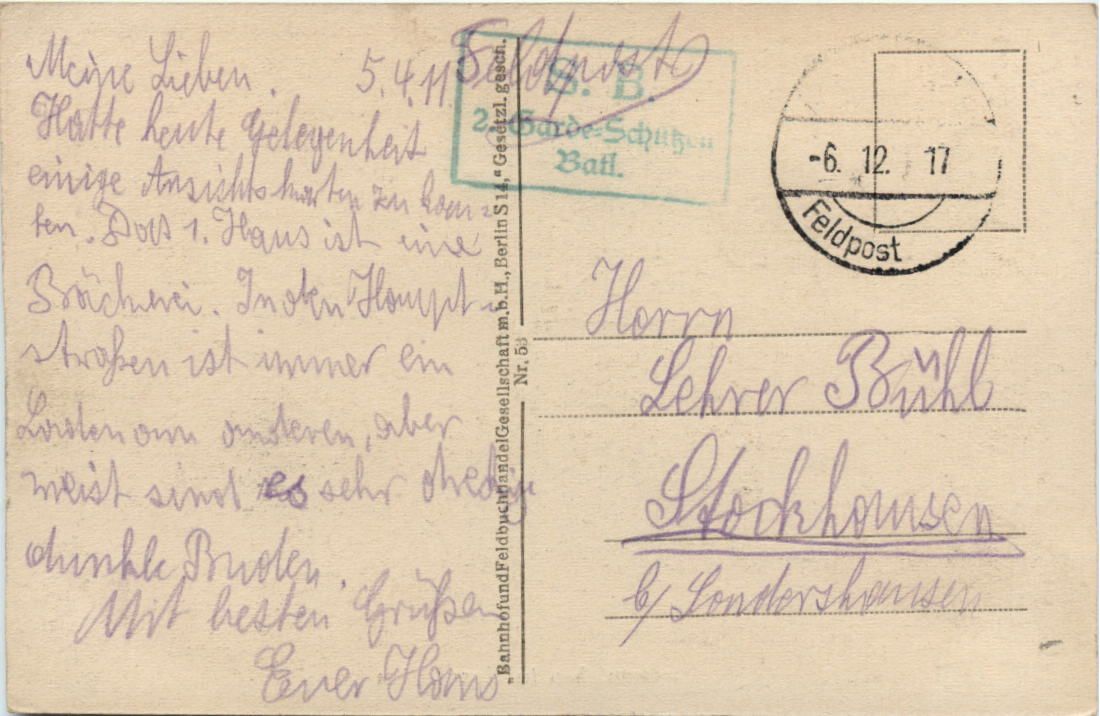 Meine Lieben. 5.4.11
Hatte heute Gelegenheit
einige Ansichtskarten zu kau=
fen. Das 1. Haus ist eine
Bäckerei. In den Haupt=
straßen ist immer ein
Laden am anderen, aber
meist sind es sehr dreckige
dunkle Buden.
Mit besten Grüßen
Euer Hans
"Bahnhof und Feldbuchhandel Gesellschaft m.b.H., Berlin S 14," Gesetzl. gesch.
Nr. 53
Feldpost
S. B.
2. Garde-Schützen
Batl.
-6. 12. 17
Feldpost
Herrn
Lehrer Bühl
Stockhausen
b/ Sondershausen